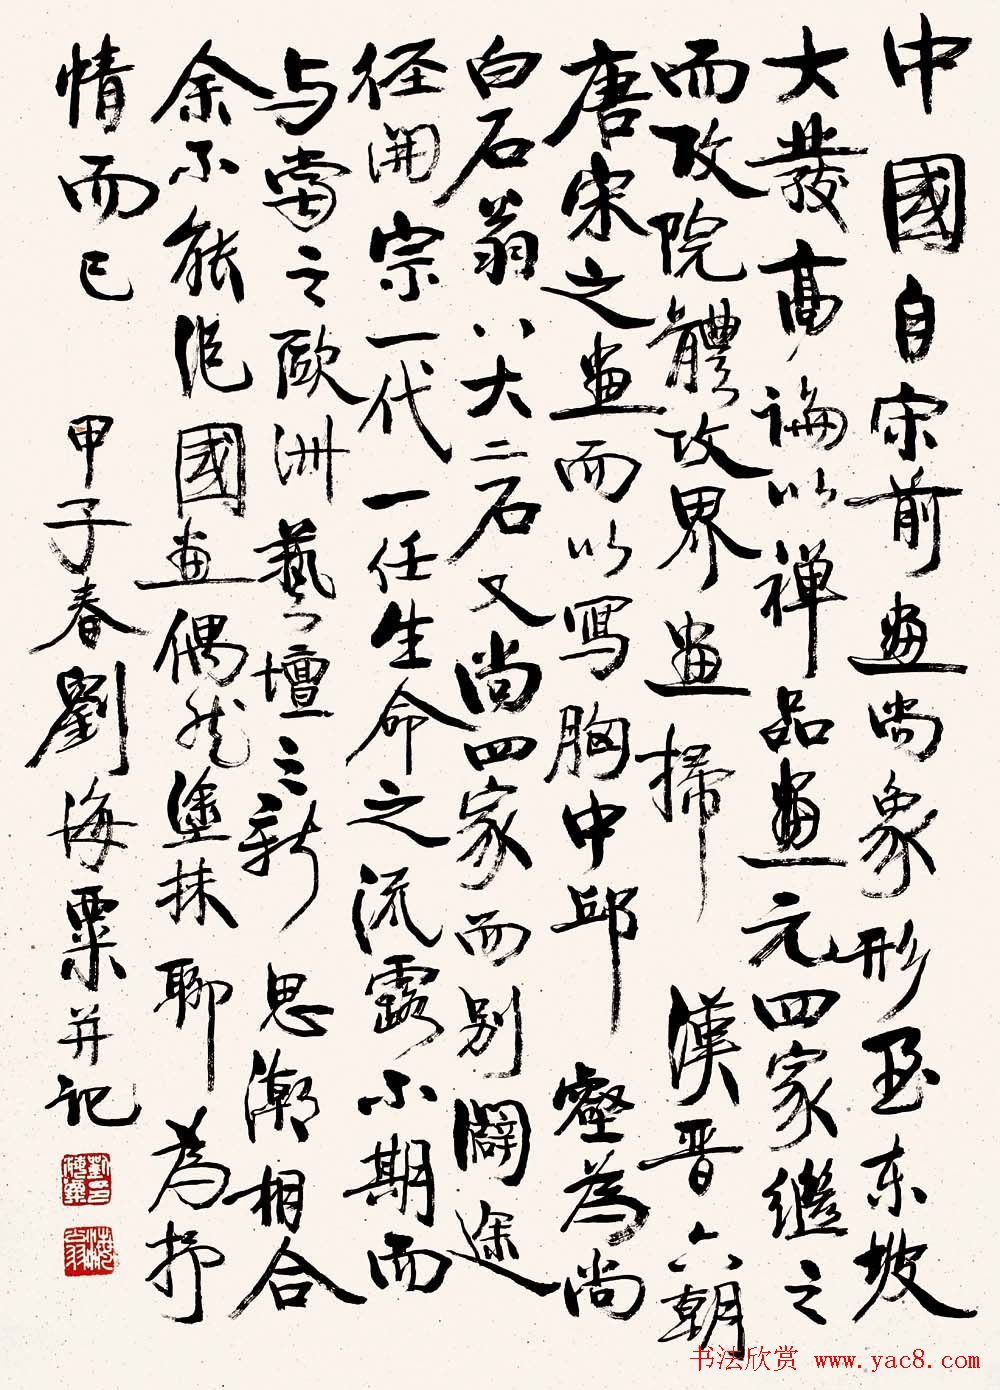 中國自宋前畫尚象形至东坡
大發高論以禅品畫元四家繼之
而攻院體攻界畫掃漢晋六朝
唐宋之畫而以写胸中邱壑為尚
白石翁八大二石又尚四家而别闢途
径開宗一代一任生命之流露不期而
与當之歐洲藝壇之新思潮相合
余不能泥國畫偶然塗抹聊為抒
情而已
甲子春劉海粟并记
書法欣赏 www.yac8.com